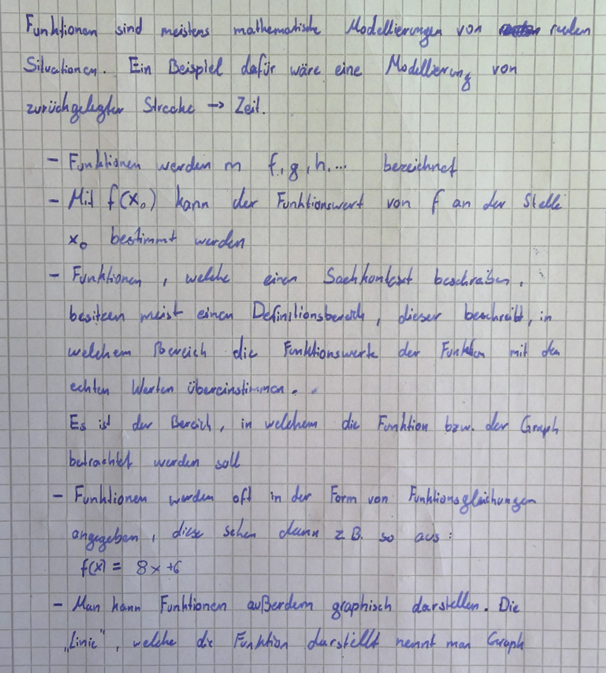 Funktionen sind meistens mathematische Modellierungen von realen
Situationen. Ein Beispiel dafür wäre eine Modellierung von
zurückgelegter Strecke → Zeit.
- Funktionen werden m f, g, h, ... bezeichnet
- Mit f(x₀) kann der Funktionswert von f an der Stelle
x₀ bestimmt werden
- Funktionen, welche einen Sachkontext beschreiben,
besitzen meist einen Definitionsbereich, dieser beschreibt, in
welchem Bereich die Funktionswerte der Funktion mit den
echten Werten übereinstimmen.
Es ist der Bereich, in welchem die Funktion bzw. der Graph
betrachtet werden soll
- Funktionen werden oft in der Form von Funktionsgleichungen
angegeben, diese sehen dann z.B. so aus:
f(x) = 8x +6
- Man kann Funktionen außerdem graphisch darstellen. Die
„Linie", welche die Funktion darstellt nennt man Graph